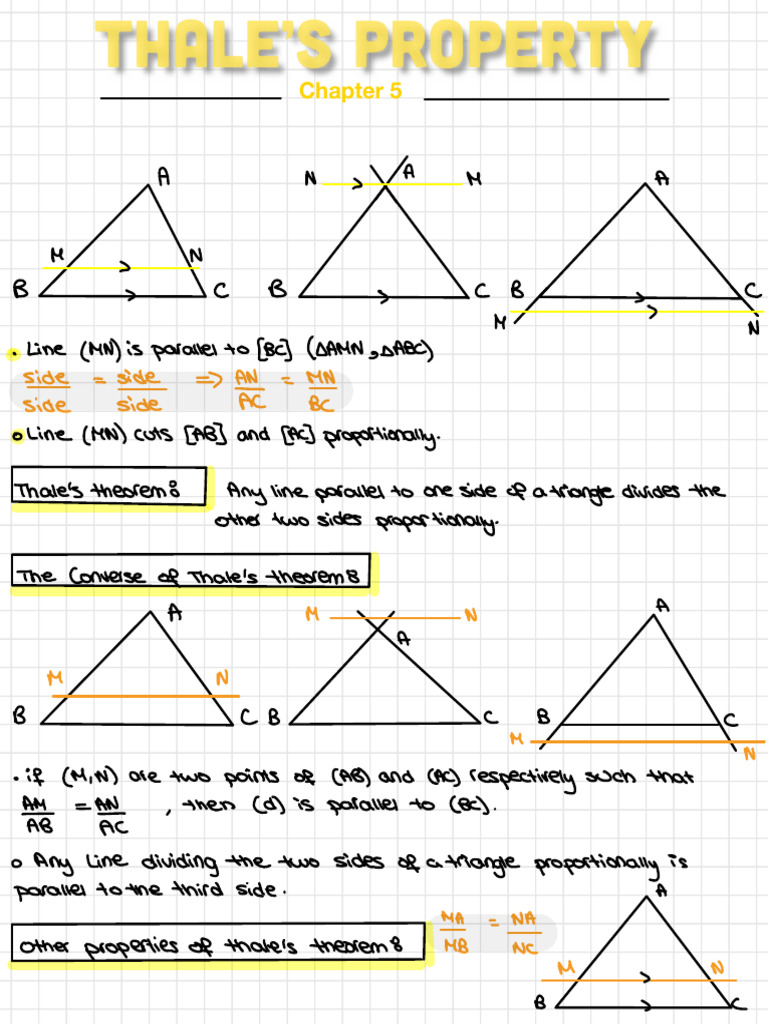 THALE'S PROPERTY
Chapter 5
A
N A M
A
M N
B C
B C
B C
M N
• Line (MN) is parallel to [BC] (△AMN, △ABC)
side/side = side/side => AN/AC = MN/BC
o Line (MN) cuts [AB] and [AC] proportionally.
Thale's theorem: Any line parallel to one side of a triangle divides the
other two sides proportionally.
The Converse of Thale's theorem:
A
M N
A
A
M N
B C
B C
B C
M N
• if (M,N) are two points of (AB) and (AC) respectively such that
AM/AB = AN/AC , then (d) is parallel to (BC).
o Any Line dividing the two sides of a triangle proportionally is
parallel to the third side.
Other properties of Thale's theorem: MA/MB = NA/NC
A
M N
B C